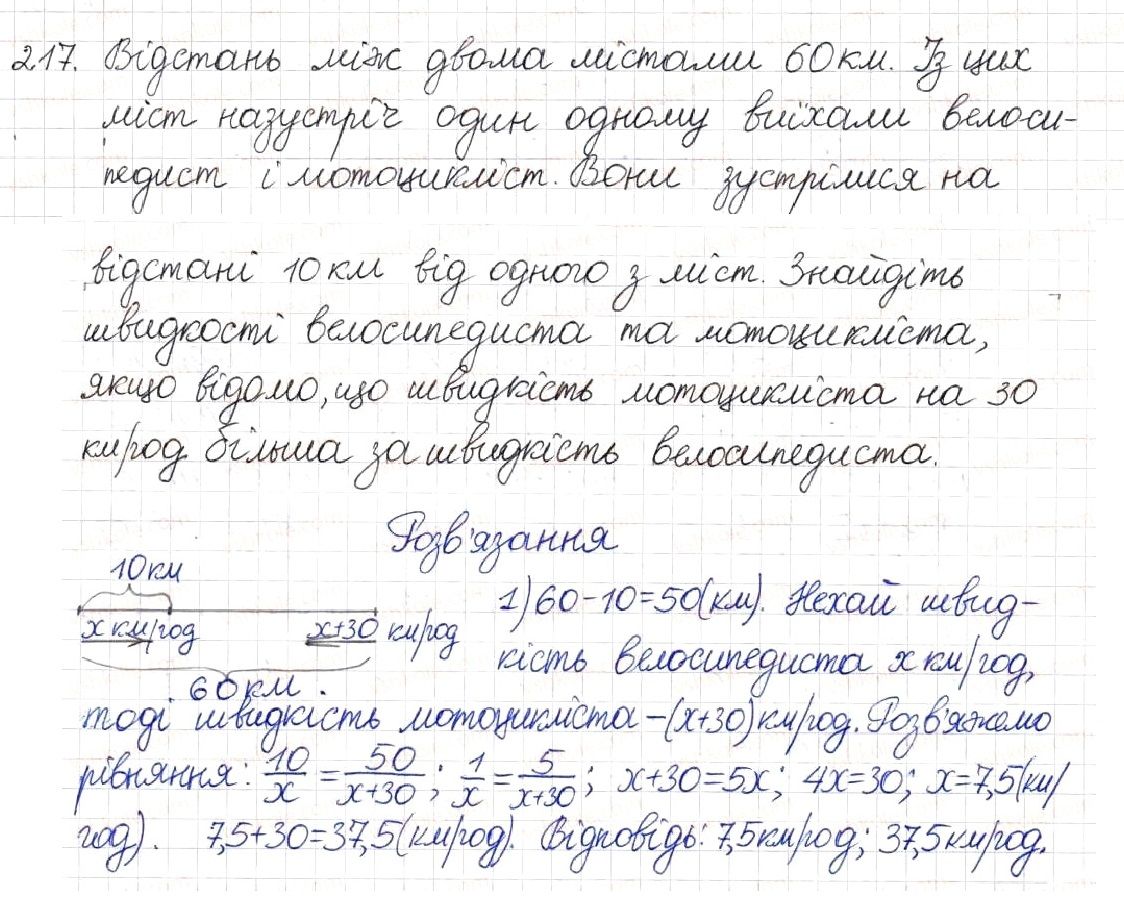 217. Відстань між двома містами 60 км. Із цих
міст назустріч один одному виїхали велоси-
педист і мотоцикліст. Вони зустрілися на
відстані 10 км від одного з міст. Знайдіть
швидкості велосипедиста та мотоцикліста,
якщо відомо, що швидкість мотоцикліста на 30
км/год більша за швидкість велосипедиста.
Розв'язання
10 км
x км/год x+30 км/год
60 км.
1) 60-10=50(км). Нехай швид-
кість велосипедиста x км/год,
тоді швидкість мотоцикліста – (x+30) км/год. Розв'яжемо
рівняння: 10/x = 50/(x+30); 1/x = 5/(x+30); x+30=5x; 4x=30; x=7,5(км/
год). 7,5+30=37,5(км/год). Відповідь: 7,5 км/год; 37,5 км/год.